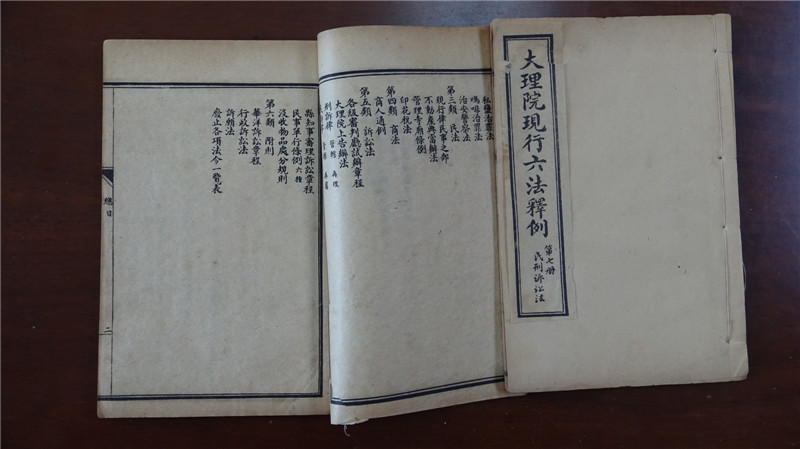 大理院現行六法釋例
第七册
民刑訴訟法
私鹽治罪法
嗎啡治罪法
治安警察法
第三類 民法
現行律民事之部
不動產典當辦法
管理寺廟條例
印花稅法
第四類 商法
商人通例
第五類 訴訟法
各級審判廳試辦章程
大理院上告辦法
刑訴律 管轄 再理
縣知事審理訴訟章程
民事單行條例六種
沒收物品處分規則
第六類 附則
華洋訴訟章程
行政訴訟法
訴願法
廢止各項法令一覽表
總目
二